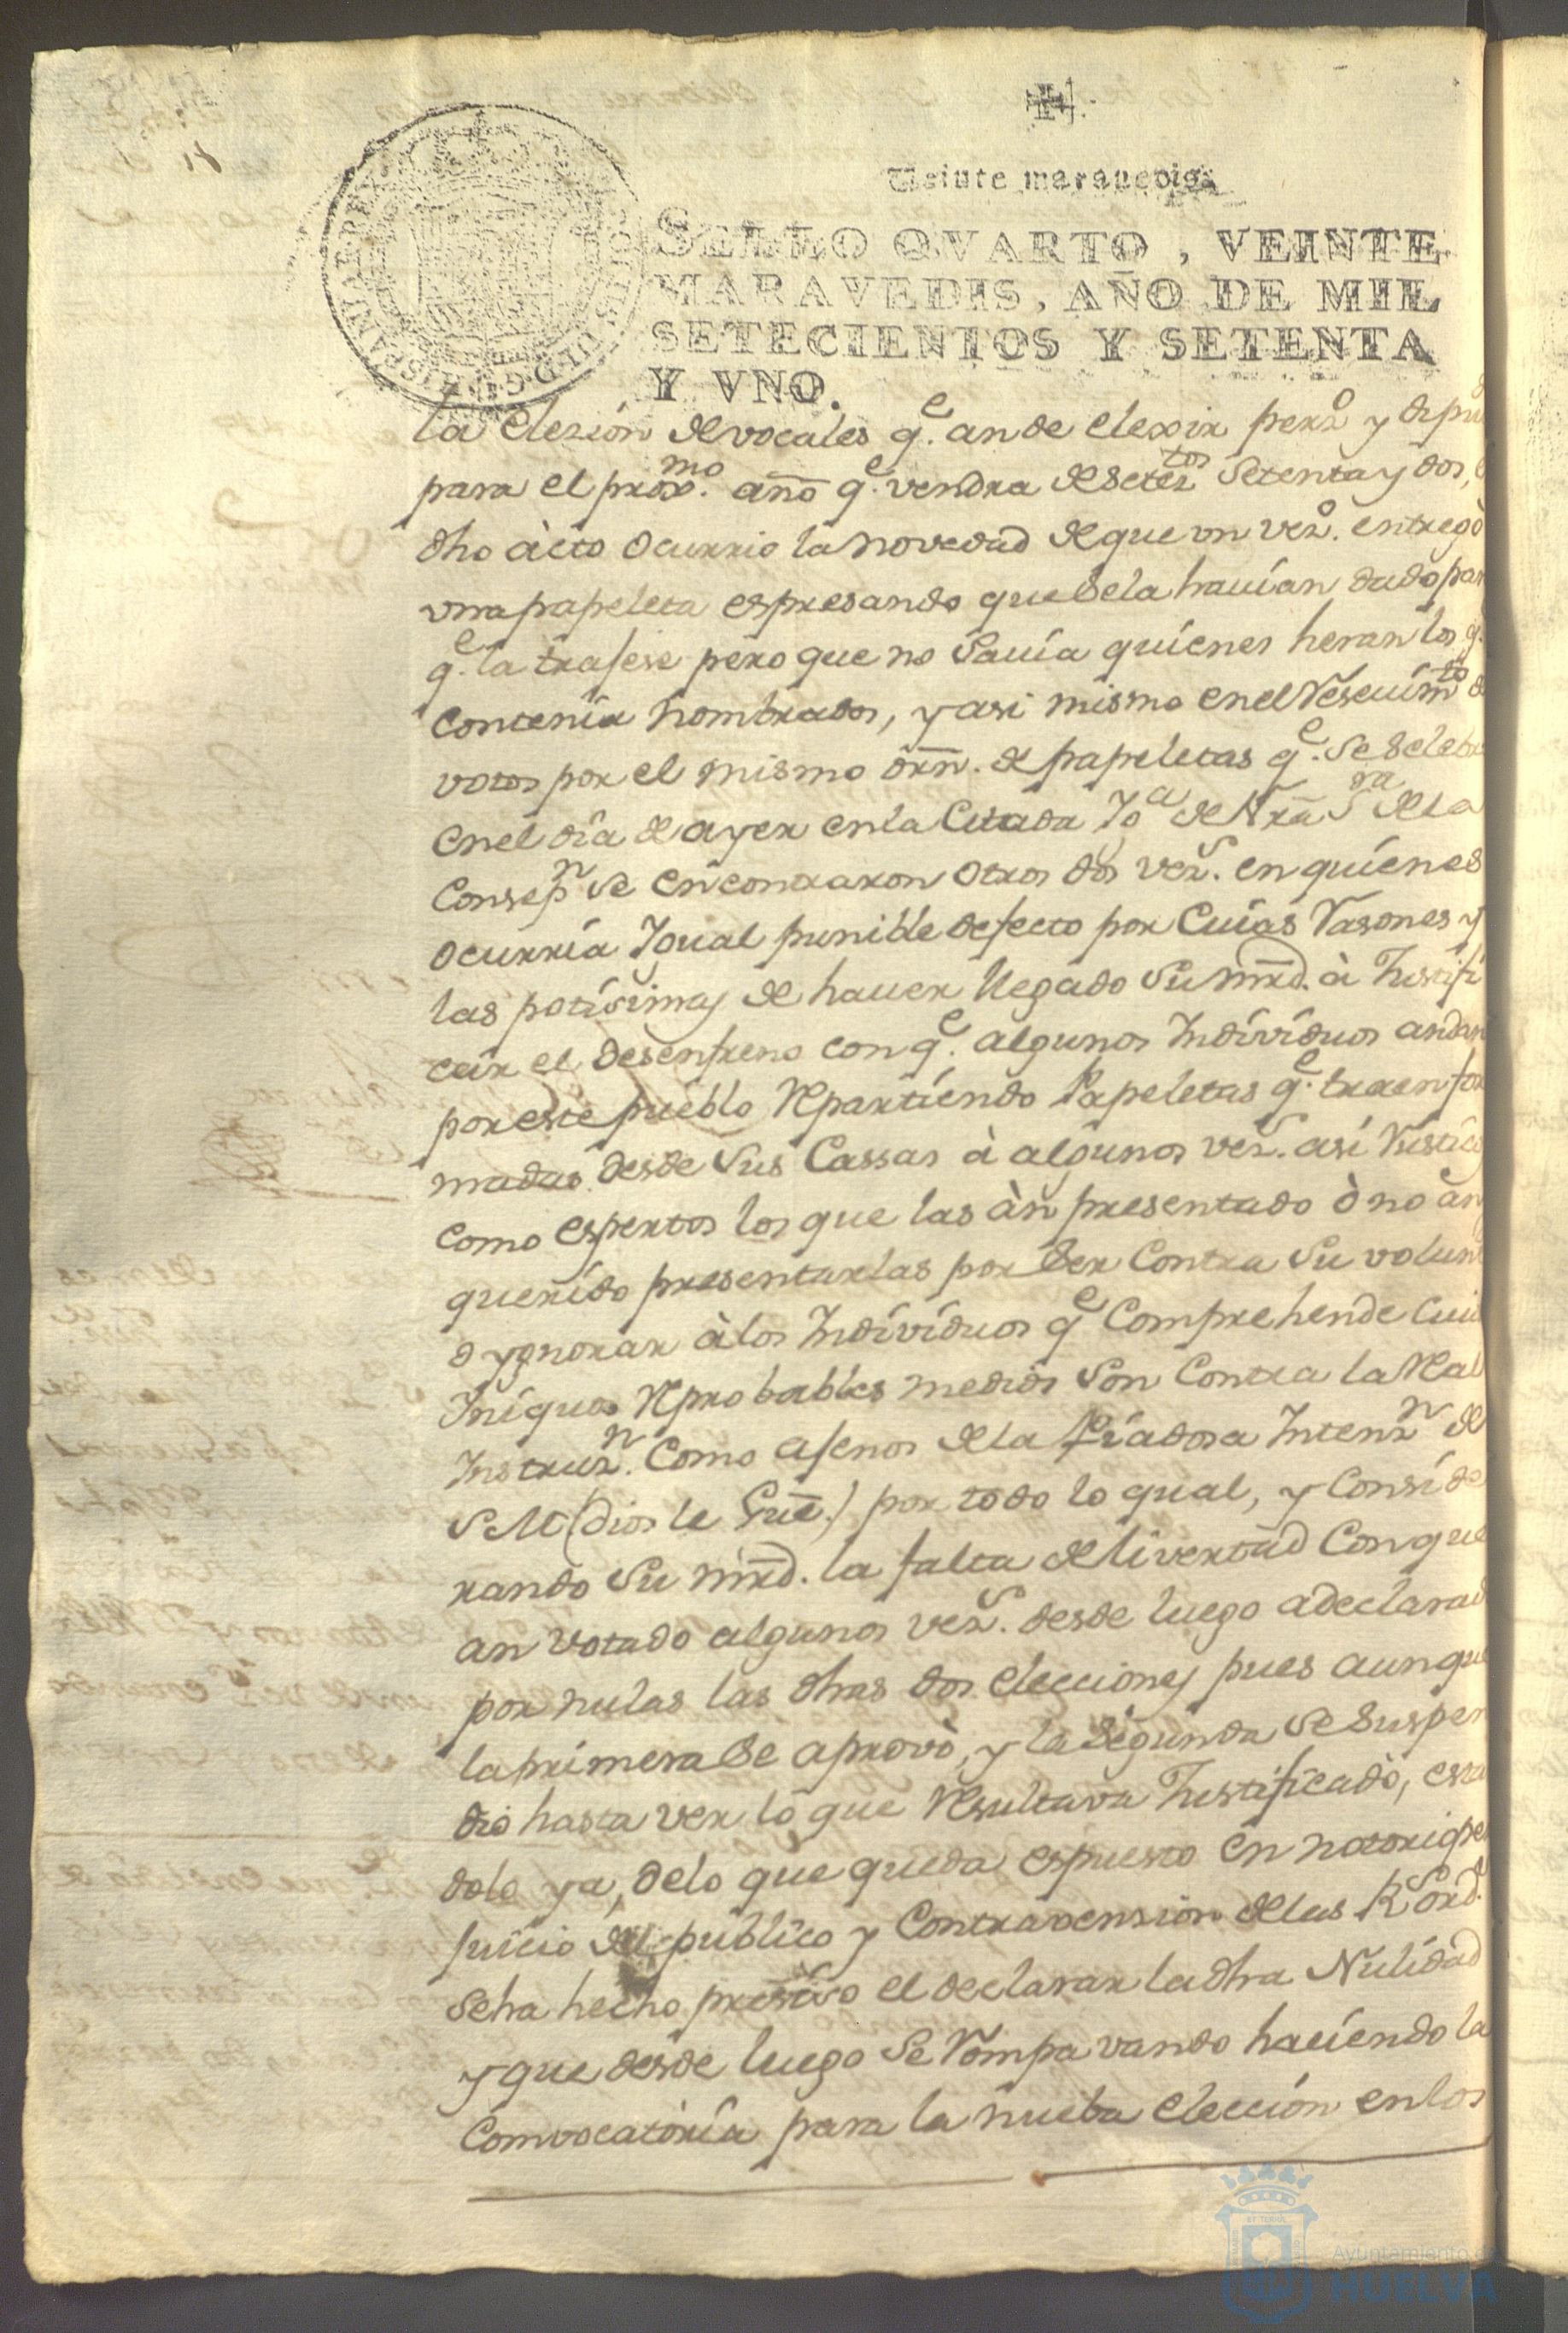 18
Veinte maravedis.
SELLO QVARTO, VEINTE
MARAVEDIS, AÑO DE MIL
SETECIENTOS Y SETENTA
Y VNO.
HISPANIAR REX
la elezion de vocales q.e an de elexir perz.o y dipu
para el prox.mo año q.e vendra de setez.tos setenta y dos,
dho àcto ocurrio la novedad de que vn vez.o entregò
vna papeleta espresando que se la hauian dado par
q.e la trajese pero que no sauia quienes heran los q.
contenia nombrados, y asi mismo en el Reseuim.to de
votos por el mismo òrn. de papeletas q.e se selebr
en el dia de ayer en la citada Yg.a de Nra S.ra de la
Consep.n se encontraron otros dos vez.s en quienes
ocurria Ygual punible defecto por cuias Rasones y
las potisimas de hauer llegado su mrd. à Justifi
car el desenfreno con q.e algunos Individuos andan
por este pueblo Repartiendo Papeletas q.e traen for
madas desde sus Cassas à algunos vez.s asi Rustico
como espertos los que las àn presentado ò no an
querido presentarlas por ser contra su volun
o ygnorar à los Individuos q.e comprehende cuio
Iniquos Reprobables medios son contra la Real
Instruz.n como ajenos de la Piadosa Intenz.n de
S M (Dios le Gue.) por todo lo qual, y conside
rando su mrd. la falta de livertad con que
an votado algunos vez.s desde luego a declarad
por nulas las dhas dos elecciones pues aunque
la primera se aprovò, y la segunda se suspen
dio hasta ver lo que Resultava Justificado, esta
dolo ya, de lo que queda espuesto en notorio per
juicio del publico y contravension de las R.s ord.s
se ha hecho presiso el declarar la dha Nulidad
y que desde luego se Rompa vando haciendo la
convocatoria para la nueba elección en los
Ayuntamiento de
HUELVA